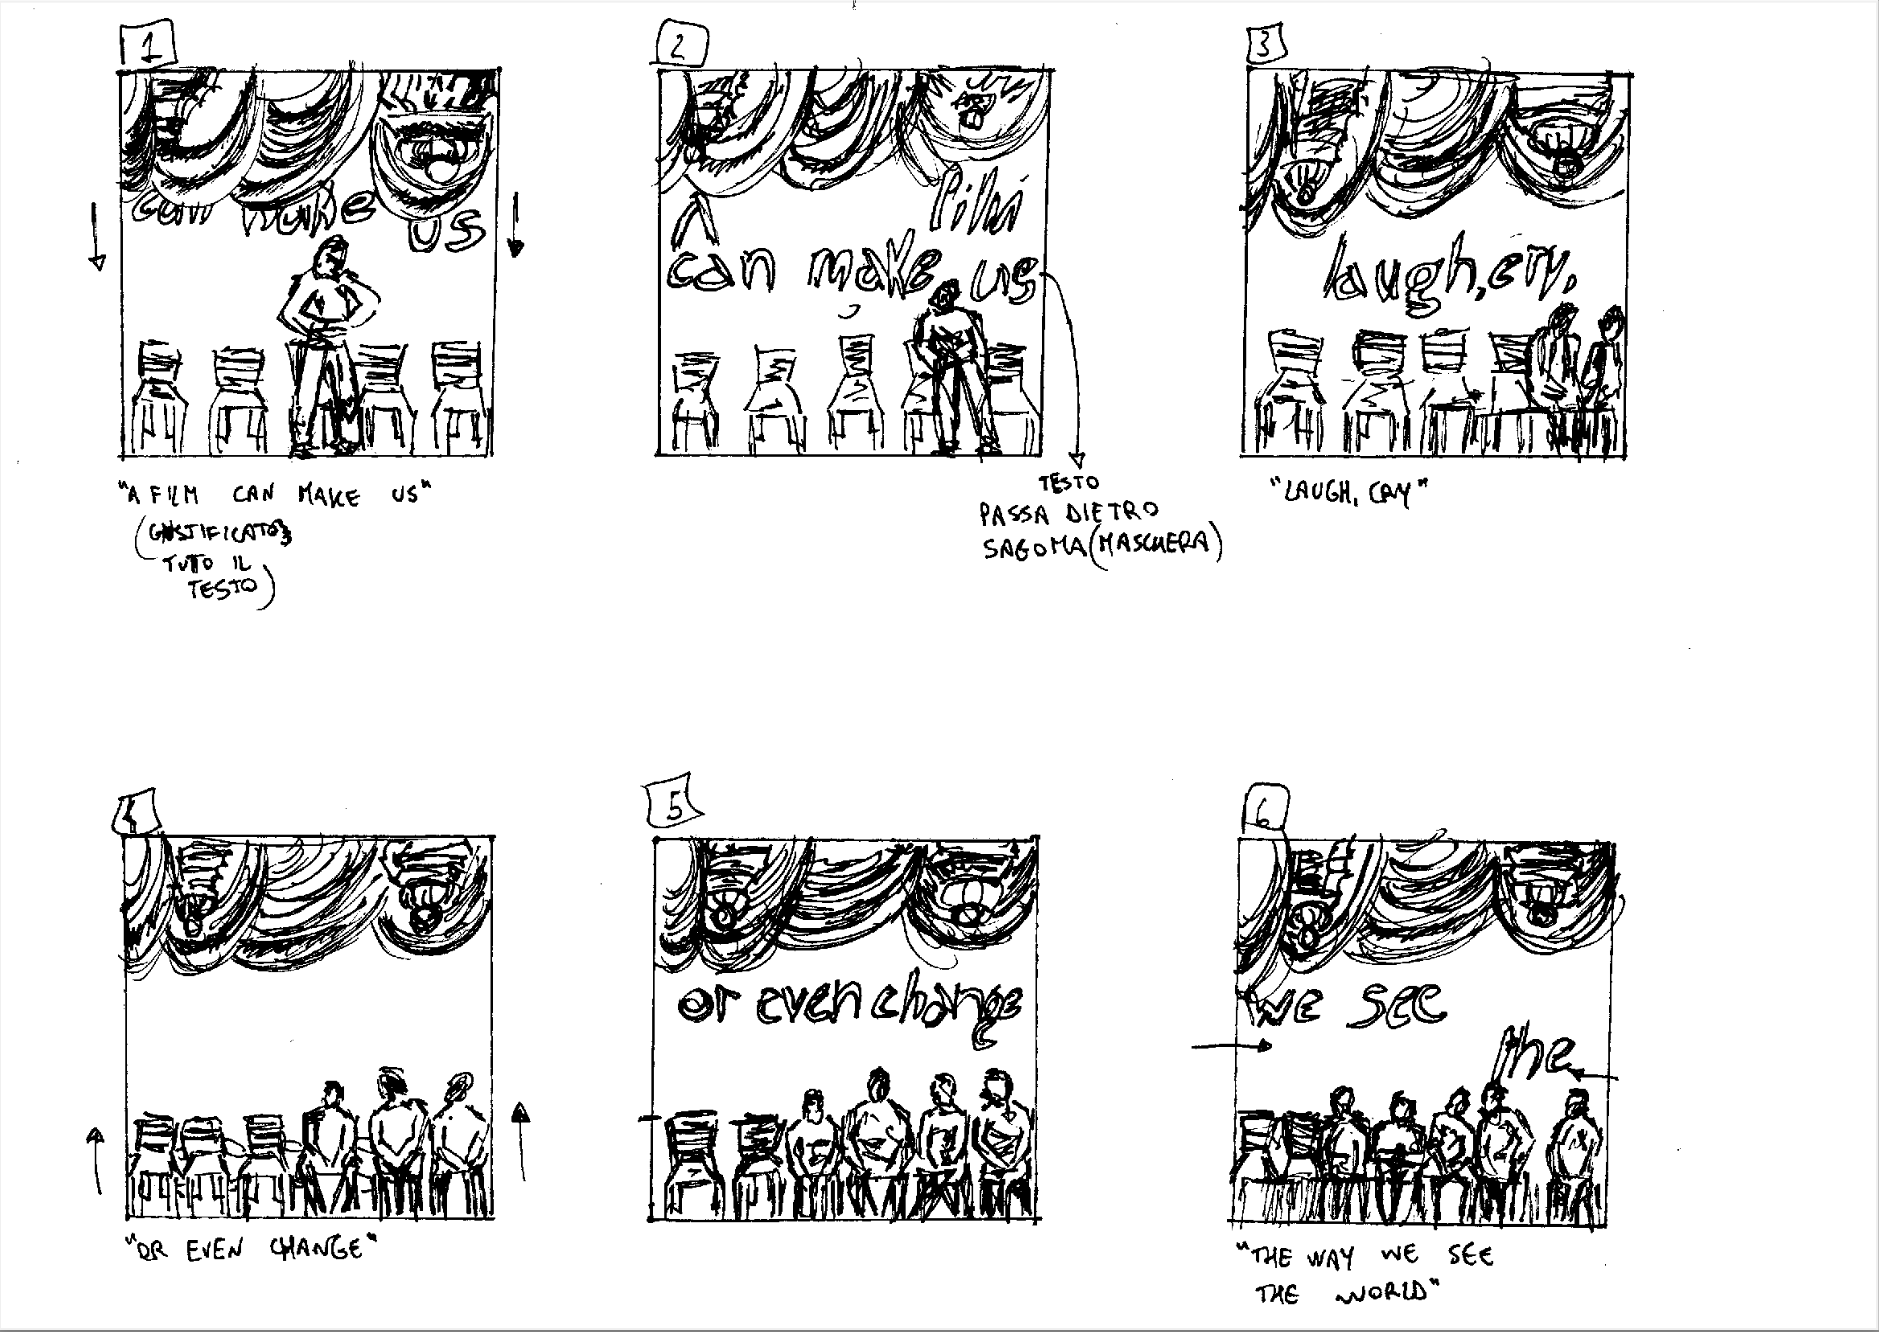 1
can make
us
"A FILM CAN MAKE US"
(GIUSTIFICATO
TUTTO IL
TESTO)
2
A film
can make us
TESTO
PASSA DIETRO
SAGOMA (MASCHERA)
3
laugh, cry,
"LAUGH, CRY"
4
"OR EVEN CHANGE"
5
or even change
6
we see
the
"THE WAY WE SEE
THE WORLD"